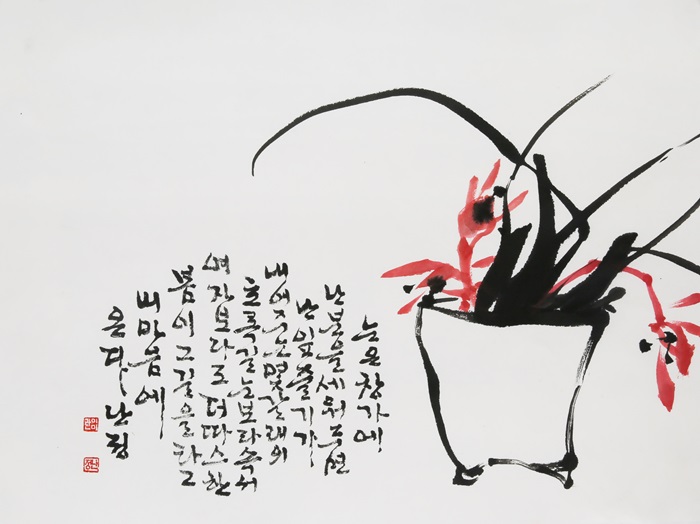 창가에
난분을세워두면
난잎줄기가
내어주는몇갈래의
초록길눈보라속서
여자보다도 더따스한
봄이그길을타고
내마음에
온다 난정